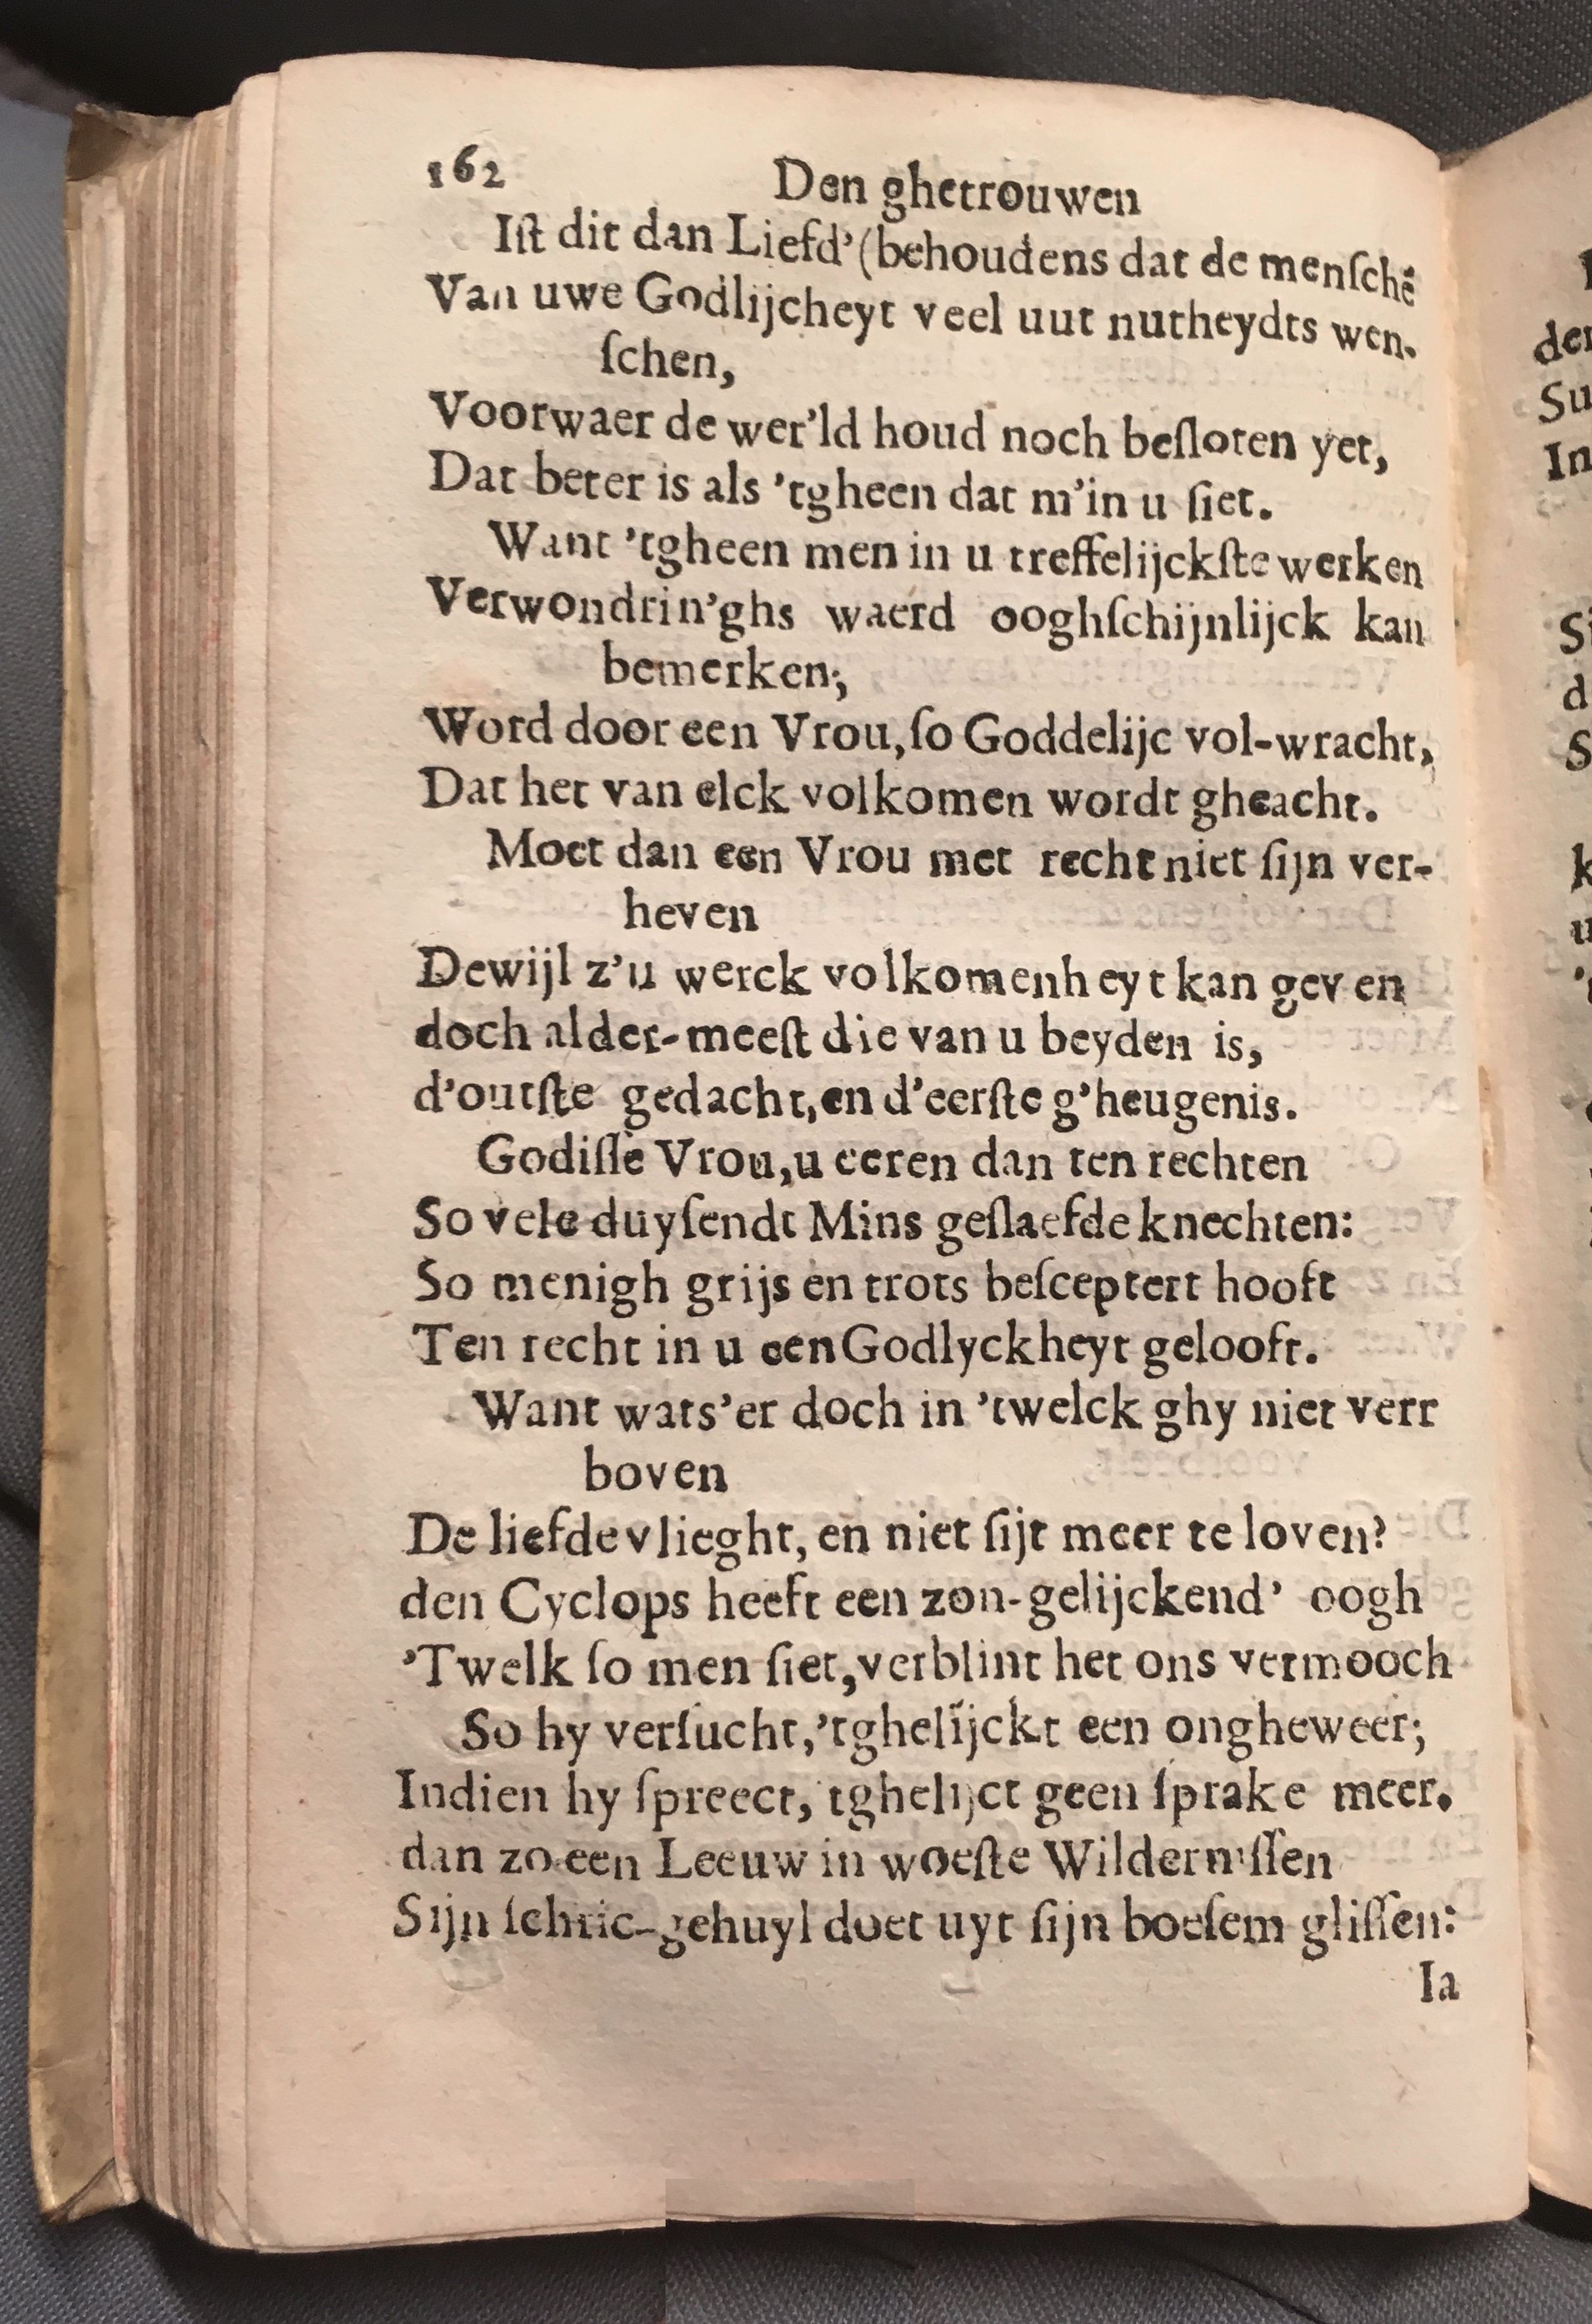 162 Den ghetrouwen
Iſt dit dan Liefd’(behoudens dat de menſchē
Van uwe Godlijcheyt veel uut nutheydts wen-
ſchen,
Voorwaer de wer’ld houd noch beſloten yet,
Dat beter is als ’tgheen dat m’in u ſiet.
Want ’tgheen men in u treffelijckſte werken
Verwondrin’ghs waerd ooghſchijnlijck kan
bemerken;,
Word door een Vrou,ſo Goddelijc vol-wracht,
Dat het van elck volkomen wordt gheacht.
Moet dan een Vrou met recht niet ſijn ver-
heven
Dewijl z’u werck volkomenheyt kan geven
doch alder-meeſt die van u beyden is,
d’outſte gedacht,en d’eerſte g’heugenis.
Godiſſe Vrou,u eeren dan ten rechten
So vele duyſendt Mins geſlaefde knechten:
So menigh grijs en trots beſceptert hooft
Ten recht in u een Godlyckheyt gelooft.
Want wats’er doch in ’twelck ghy niet verr
boven
De liefde vlieght, en niet ſijt meer te loven?
den Cyclops heeft een zon-gelijckend’ oogh
’Twelk ſo men ſiet,verblint het ons vermooch
So hy verſucht,’tghelijckt een ongheweer;
Indien hy ſpreect, tghelijct geen ſprake meer.
dan zo een Leeuw in woeſte Wilderniſſen
Sijn ſchric-gehuyl doet uyt ſijn boeſem gliſſen:
Ia
der
Su
In
Si
d
S
k
u